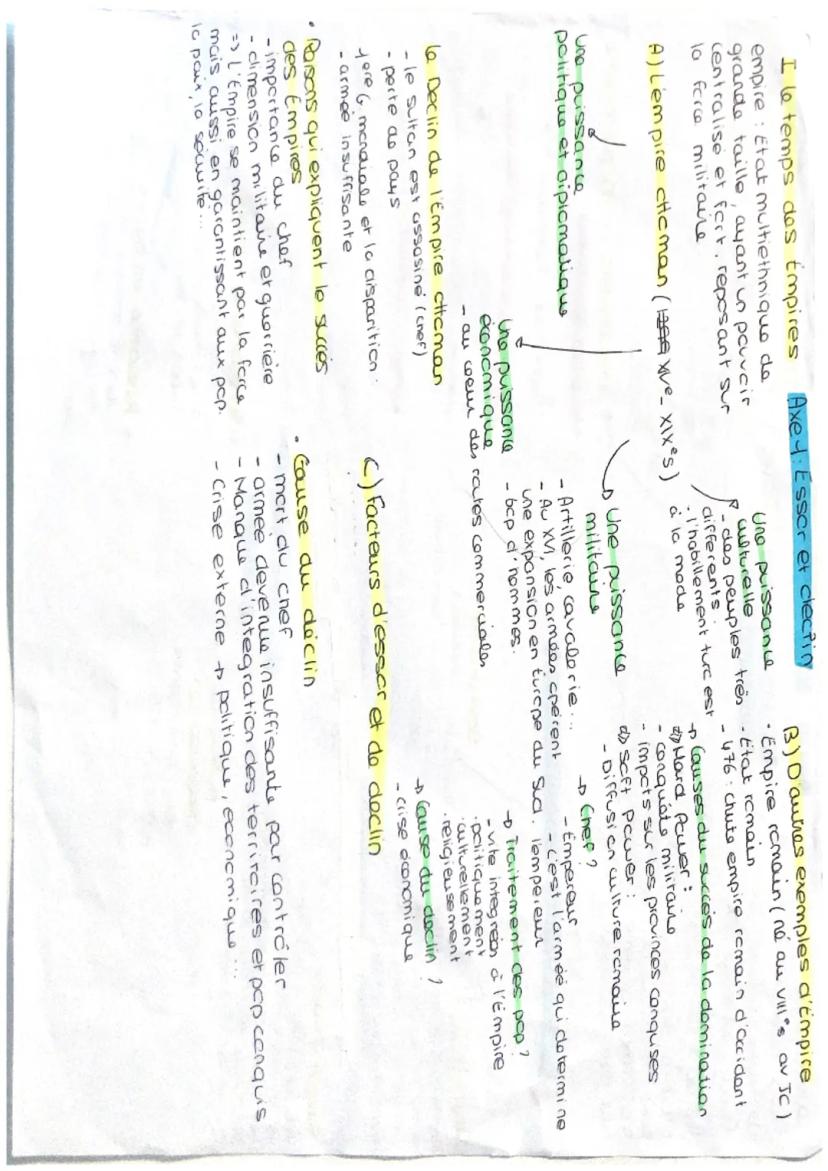 Axe 1: Essor et déclin
I le temps des Émpires
empire : Etat multiethnique de
grande taille, ayant un pouvoir
centralisé et fort, reposant sur
la force militaire
A) L'empire ottoman ( XIVe - XIXes)
Une puissance
politique et diplomatique
Une puissance
économique
- au coeur des routes commerciales
Une puissance
culturelle
- des peuples très
différents
- l'habillement turc est
à la mode
↳ Une puissance
militaire
- Artillerie, cavalerie...
- Au XVI, les armées opèrent
une expansion en Europe du Sud.
- bcp d'hommes.
le Declin de l'Empire ottoman
- le sultan est assasiné (chef)
- perte de pays
1ere G mondiale et la disparition :
- armée insuffisante
B) D'autres exemples d'Émpire
• Empire romain ( né au VIII°s av JC )
- Etat romain
- 476 : chute empire romain d'occident
→ Causes du succès de la domination
a) Hard Power :
- conquête militaire
- impôts sur les provinces conquises
b) Soft Power :
- Diffusion culture romaine
→ Chef ?
- Empereur
- c'est l'armée qui determine
l'empereur
→ Traitement des pop ?
- vite integrées à l'Émpire
. politiquement
. culturellement
. religieusement
→ Cause du declin ?
- crise économique
C) Facteurs d'essor et de declin
• Raisons qui expliquent le succès
des Émpires
- importance du chef
- dimension militaire et guerrière
=> L'Émpire se maintient par la force
mais aussi en garantissant aux pop.
la paix, la sécurité...
• Cause du déclin
- mort du chef
- armée devenue insuffisante par contrôler
- Manque d'integration des territoires et pop conquis
- Crise externe → politique, économique...